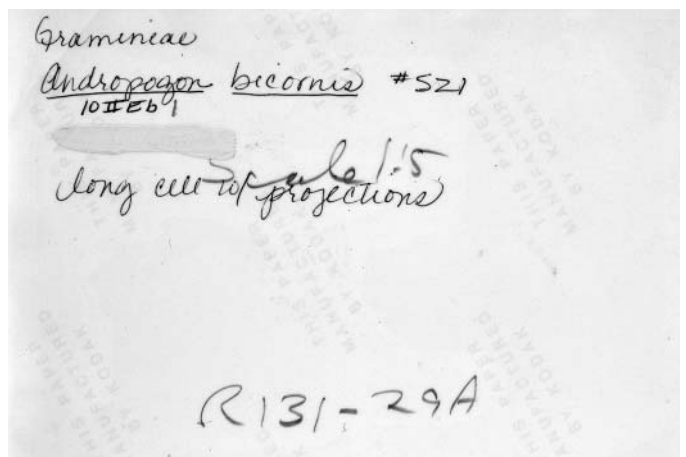 Gramineae
Andropogon bicornis #521
10IIEb1
Scale 1:5
long cell w/ projections
R131-29A
THIS PAPER
MANUFACTURED
BY KODAK